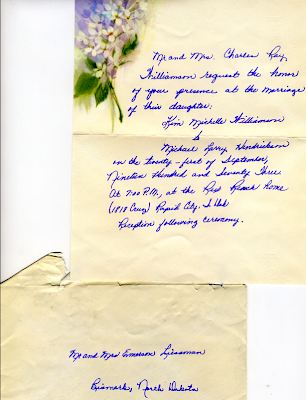 Mr and Mrs. Charles Ray
Williamson request the honor
of your presence at the marriage
of their daughter:
Kim Michelle Williamson
to
Michael Larry Hendrickson
on the twenty-first of September,
Nineteen Hundred and Seventy Three.
At 7:00 P.M., at the Ranch home
(1818 Cruz) Rapid City, S. Dak
Reception following ceremony.
Mr and Mrs Emerson Liessman
Bismark, North Dakota